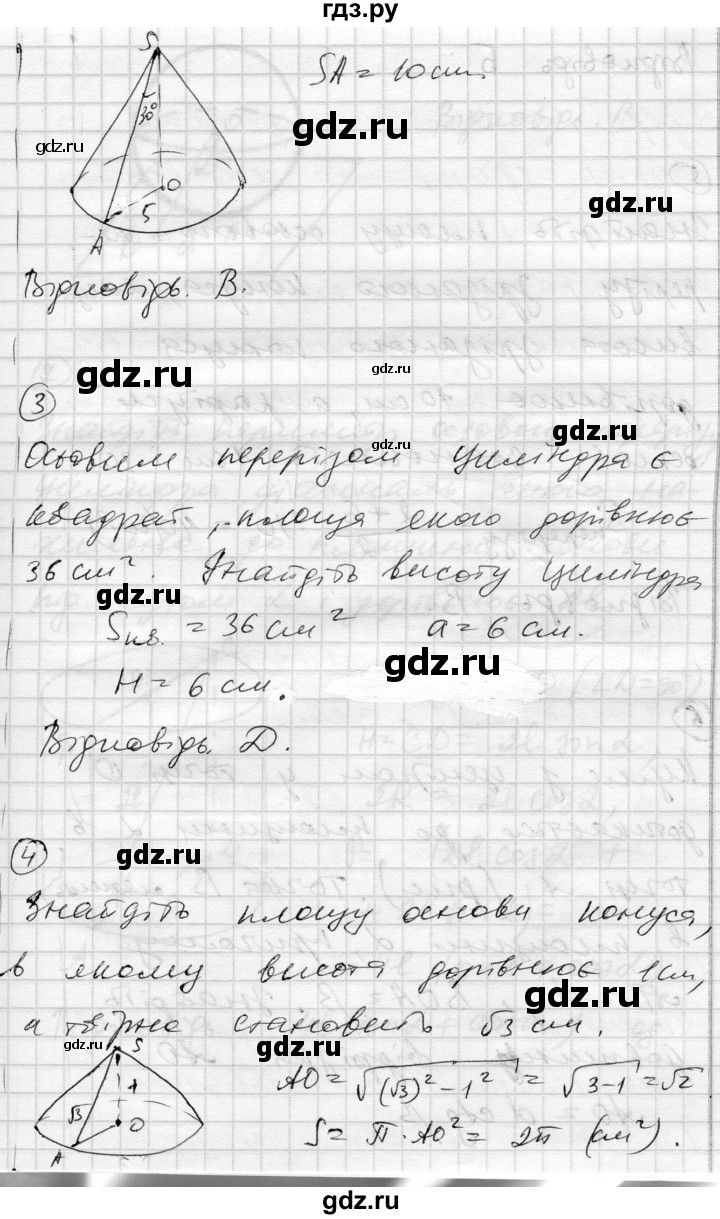 гдз.ру
S
SA = 10 см.
30°
gdz.ru
gdz.ru
O
5
gdz.ru
A
Відповідь. В.
gdz.ru
gdz.ru
3
gdz.ru
gdz.ru
Осьовим перерізом циліндра є
квадрат, площа якого дорівнює
36 см². Знайдіть висоту циліндра
gdz.ru
Sкв. = 36 см² a = 6 см.
gdz.ru
H = 6 см.
Відповідь. D.
4
gdz.ru
Знайдіть площу основи конуса,
в якому висота дорівнює 1 см,
gdz.ru
а твірна становить √3 см.
gdz.ru
gdz.ru
S
1
√3
O
A
AO = √((√3)² - 1²) = √(3-1) = √2
S = π · AO² = 2π (см²).
gdz.ru
gdz.ru